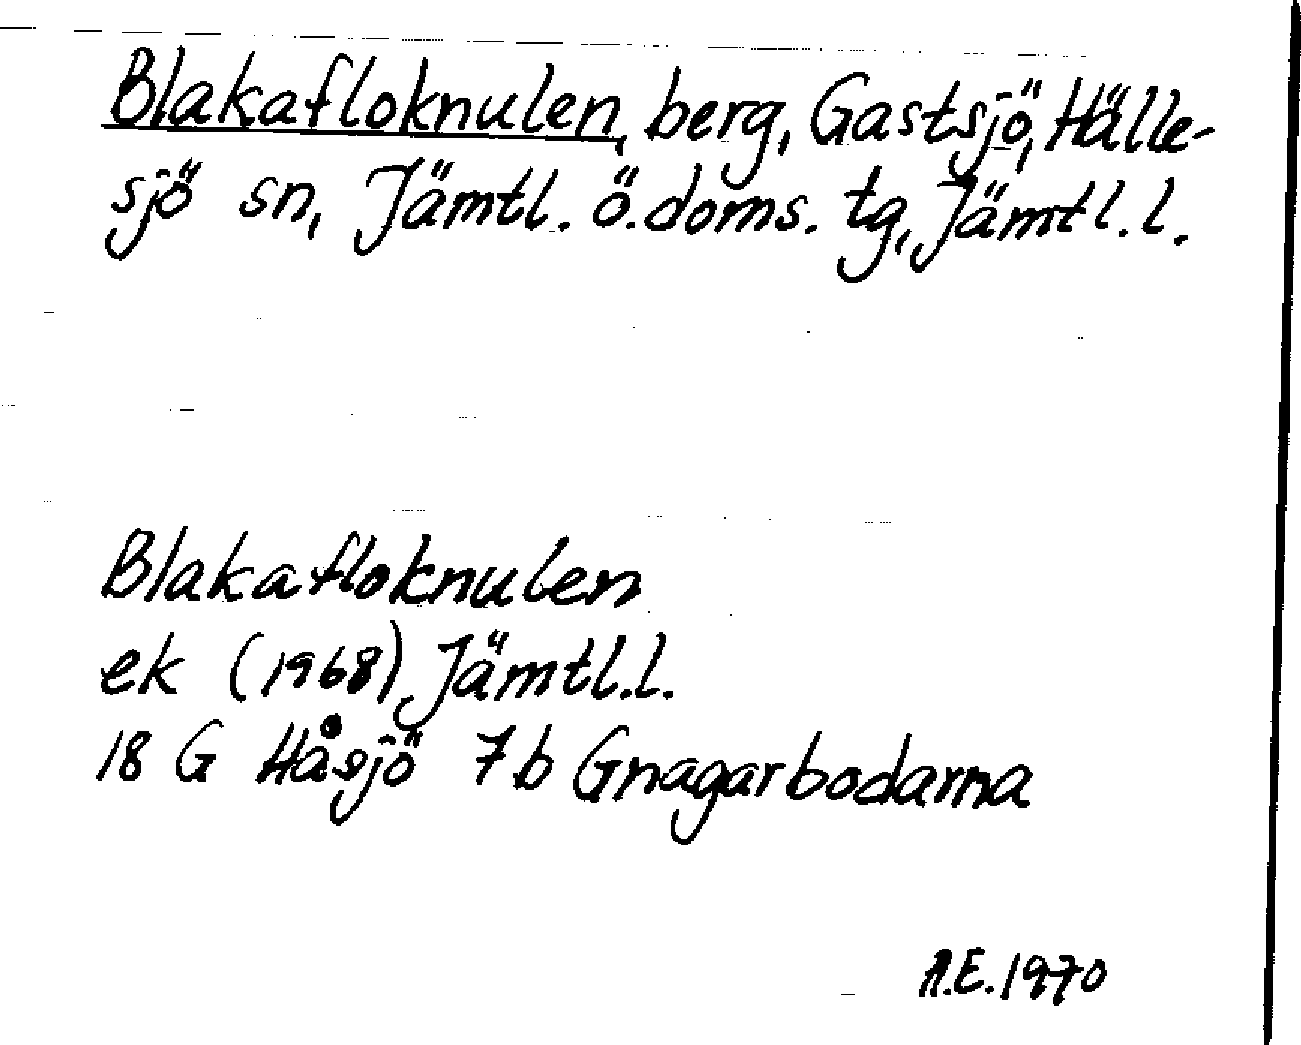 Blakafloknulen, berg, Gastsjö, Hälle-
sjö sn, Jämtl. ö. doms. tg, Jämtl. l.
Blakafloknulen
ek (1968), Jämtl. l.
18 G Håsjö 7b Gnagarbodarna
A.E. 1970